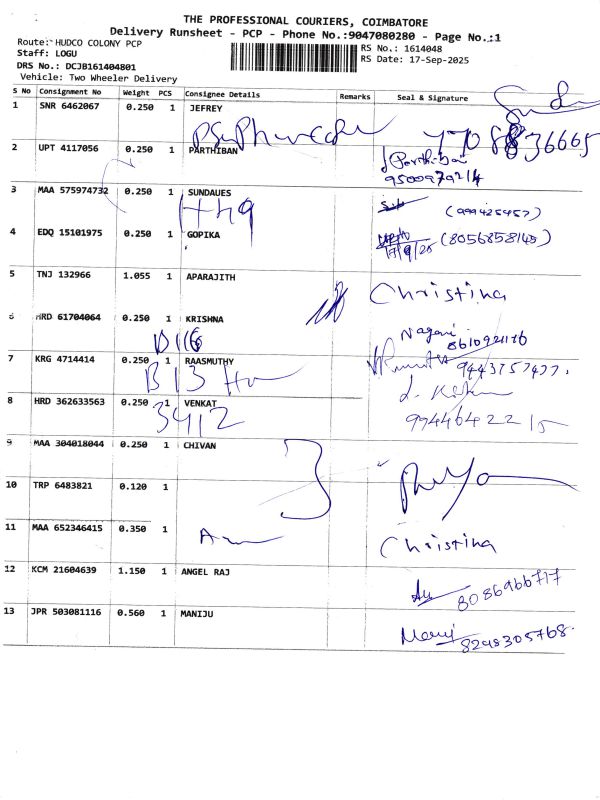 THE PROFESSIONAL COURIERS, COIMBATORE
Delivery Runsheet - PCP - Phone No.:9047080280 - Page No.:1
Route: HUDCO COLONY PCP
RS No.: 1614048
Staff: LOGU
RS Date: 17-Sep-2025
DRS No.: DCJB161404801
Vehicle: Two Wheeler Delivery
S No Consignment No Weight PCS Consignee Details Remarks Seal & Signature
1 SNR 6462067 0.250 1 JEFREY
2 UPT 4117056 0.250 1 PARTHIBAN
Parthiban
9500979214
3 MAA 575974732 0.250 1 SUNDAUES
H49
4 EDQ 15101975 0.250 1 GOPIKA (8056858145)
17/9/25
5 TNJ 132966 1.055 1 APARAJITH Christina
6 HRD 61704064 0.250 1 KRISHNA
D116
7 KRG 4714414 0.250 1 RAASMUTHY
B13
8 HRD 362633563 0.250 1 VENKAT
3412
9944642215
9 MAA 304018044 0.250 1 CHIVAN
10 TRP 6483821 0.120 1
11 MAA 652346415 0.350 1 Christina
12 KCM 21604639 1.150 1 ANGEL RAJ
8086966717
13 JPR 503081116 0.560 1 MANIJU
8298305768